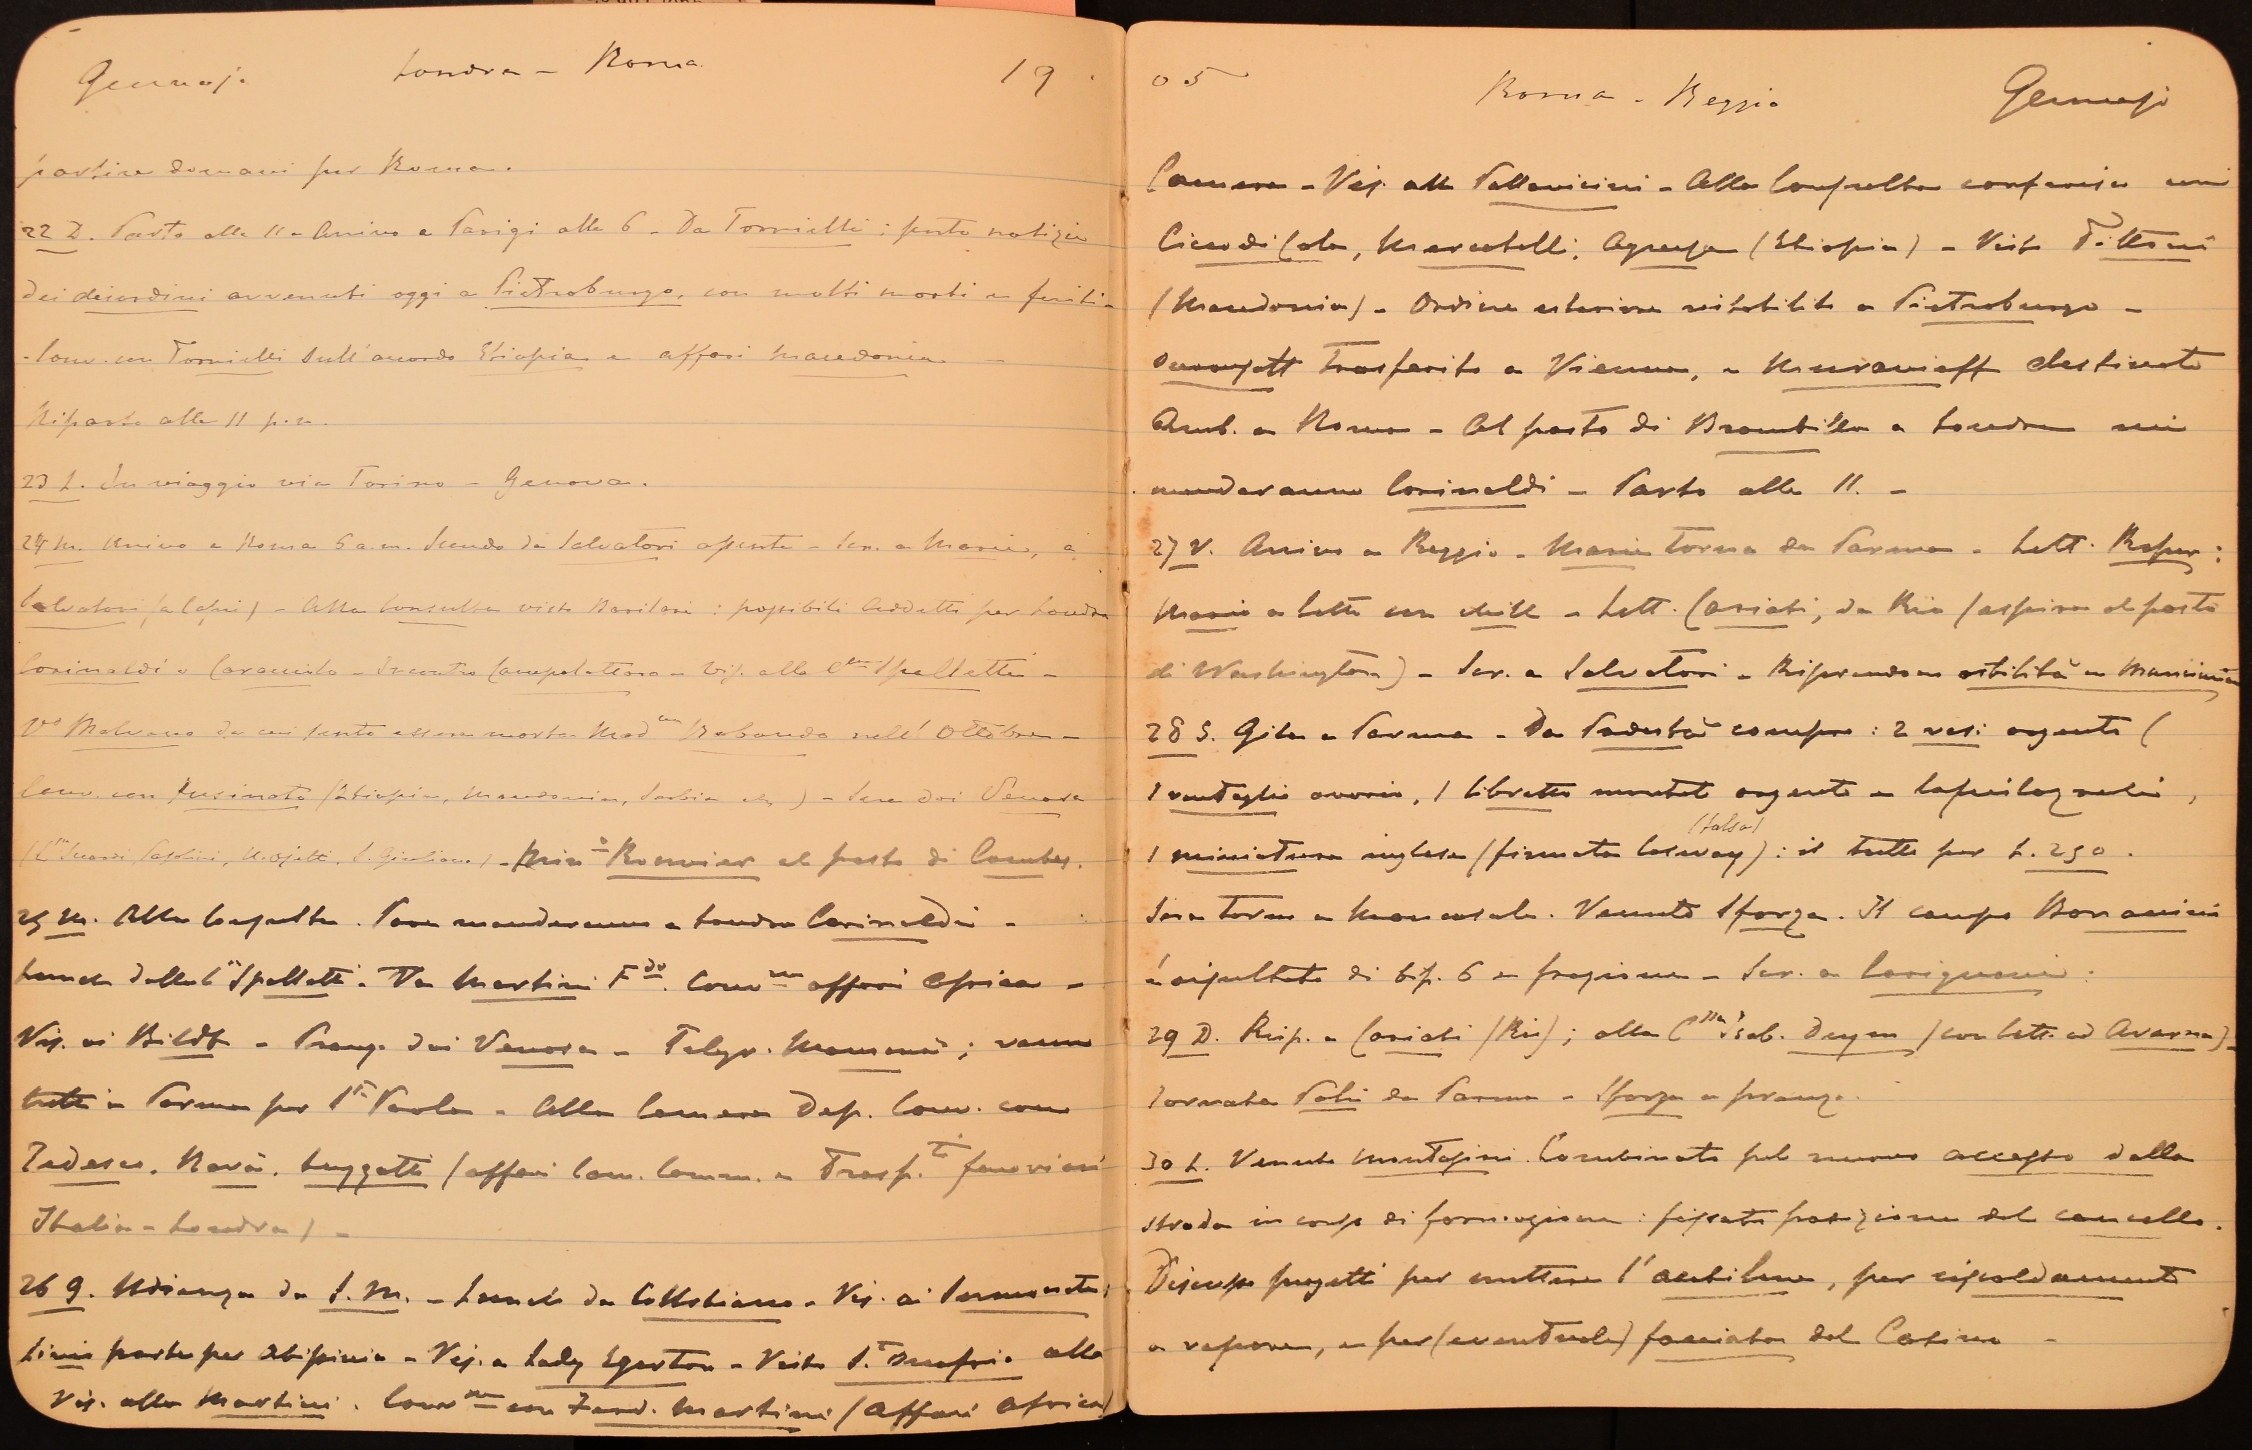 Gennajo Londra - Roma. 19
partire domani per Roma.
22 D. Parto alle 11 - Arrivo a Parigi alle 6 - Da Tornielli : porto notizie
dei disordini avvenuti oggi a Pietroburgo, con molti morti e feriti -
- Conv. con Tornielli sull'accordo Etiopia e affari Macedonia -
Riparto alle 11 p.m.
23 L. In viaggio via Torino - Genova.
24 M. Arrivo a Roma 6 a.m. Scendo da Salvatori assente - Scr. a Maria, a
Salvatori (a Capri) - Alla Consulta visto Barilari : possibili Addetti per Londra
Corinaldi o Caracciolo - Incontro Campolattaro - Vis. alla Spalletti -
Vo Malvano da cui sento essere morta Mad Rabaudo nell' Ottobre -
Conv. con Fusinato (Etiopia, Macedonia, Serbia etc) - Sera dai Venosa
( Pasolini, U. Ojetti, S. Giuliano) - Min Rouvier al posto di Combes.
25 M. Alla Consulta. Pare manderanno a Londra Corinaldi -
Lunch dalla Spalletti - Da Martini Fdo. Conv affari Africa -
Vis. ai Bildt - Pranzo dai Venosa - Telegr. Mammà ; vanno
tutti a Parma per Paola - Alla Camera Dep. Conv. con
Tedesco, Ravà, Luzzatti (affari Cam. Comm. e Trasp.ti ferroviari
Italia - Londra) -
26 G. Udienza da S.M. - Lunch da Collobiano - Vis. ai Sermoneta ;
parte per Abissinia - Vis. a Lady Egerton - Visto S. Onofrio alla
Vis. alla Martini. Conv con Ferd. Martini (Affari Africa)
05 Roma - Reggio Gennajo
Camera - Vis. alla Pallavicini - Alla Consulta conferisco con
Cicco di Cola, Mercatelli, Agnesa (Etiopia) - Visto Tittoni
(Macedonia) - Ordine esteriore ristabilito a Pietroburgo -
trasferito a Vienna, e Muravieff destinato
Amb. a Roma - Al posto di Brambilla a Londra mi
manderanno Corinaldi - Parto alle 11. -
27 V. Arrivo a Reggio - Maria torna da Parma - Lett. :
Maria a letto con - Lett. Cariati, da Rio (aspira al posto
di Washington) - Scr. a Salvatori - Riprendono ostilità in Manciuria
28 S. Gita a Parma - Da Podestà compro : 2 vasi argento (
1 ventaglio avorio, 1 libretto montato argento e lapislazuli,
(falsa)
1 miniatura inglese (firmata Cosway) : il tutto per L. 250.
Sera torno a Mancasale. Venuto Sforza. Il campo Bonacini
è risultato di bif. 6 e frazione - Scr. a :
29 D. Risp. a Cariati (Rio) ; alla Isab. Deym (con lett. ad Avarna) -
Tornata da Parma - Sforza a pranzo.
30 L. Venuto Montasini. Combinato pel nuovo accesso dalla
strada in corso di formazione : fissata posizione del cancello.
Discusso progetti per mettere l'acetilene, per riscaldamento
a vapore, e per (eventuale) facciata del Casino -